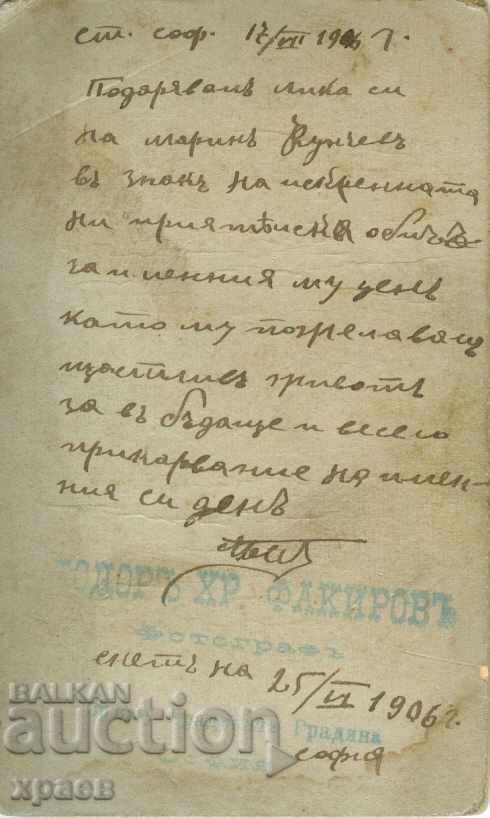 ст. соф. 17/VII 1906 г.
Подарявамъ лика си
на Маринъ Кунчевъ
въ знакъ на искренната
ни приятѣлска обичь
за именния му день
като му пожелавамъ
щастливъ животъ
за въ бѫдаще и весело
прикарвание на имен-
ния си день
ТОДОРЪ ХР. ФАКИРОВЪ
Фотографъ
снетъ на 25/VI 1906 г.
Градина
СОФИЯ
София
BALKAN
auction
храев